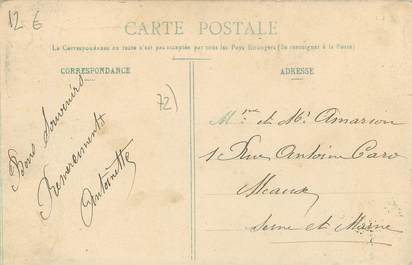 12 €
CARTE POSTALE
La Correspondance au recto n'est pas acceptée par tous les Pays Etrangers (Se renseigner à la Poste)
CORRESPONDANCE
ADRESSE
72)
Bons Souvenirs
Remerciements
Antoinette
Mme et Mr Amarson
1 Rue Antoine Caro
Meaux
Seine et Marne